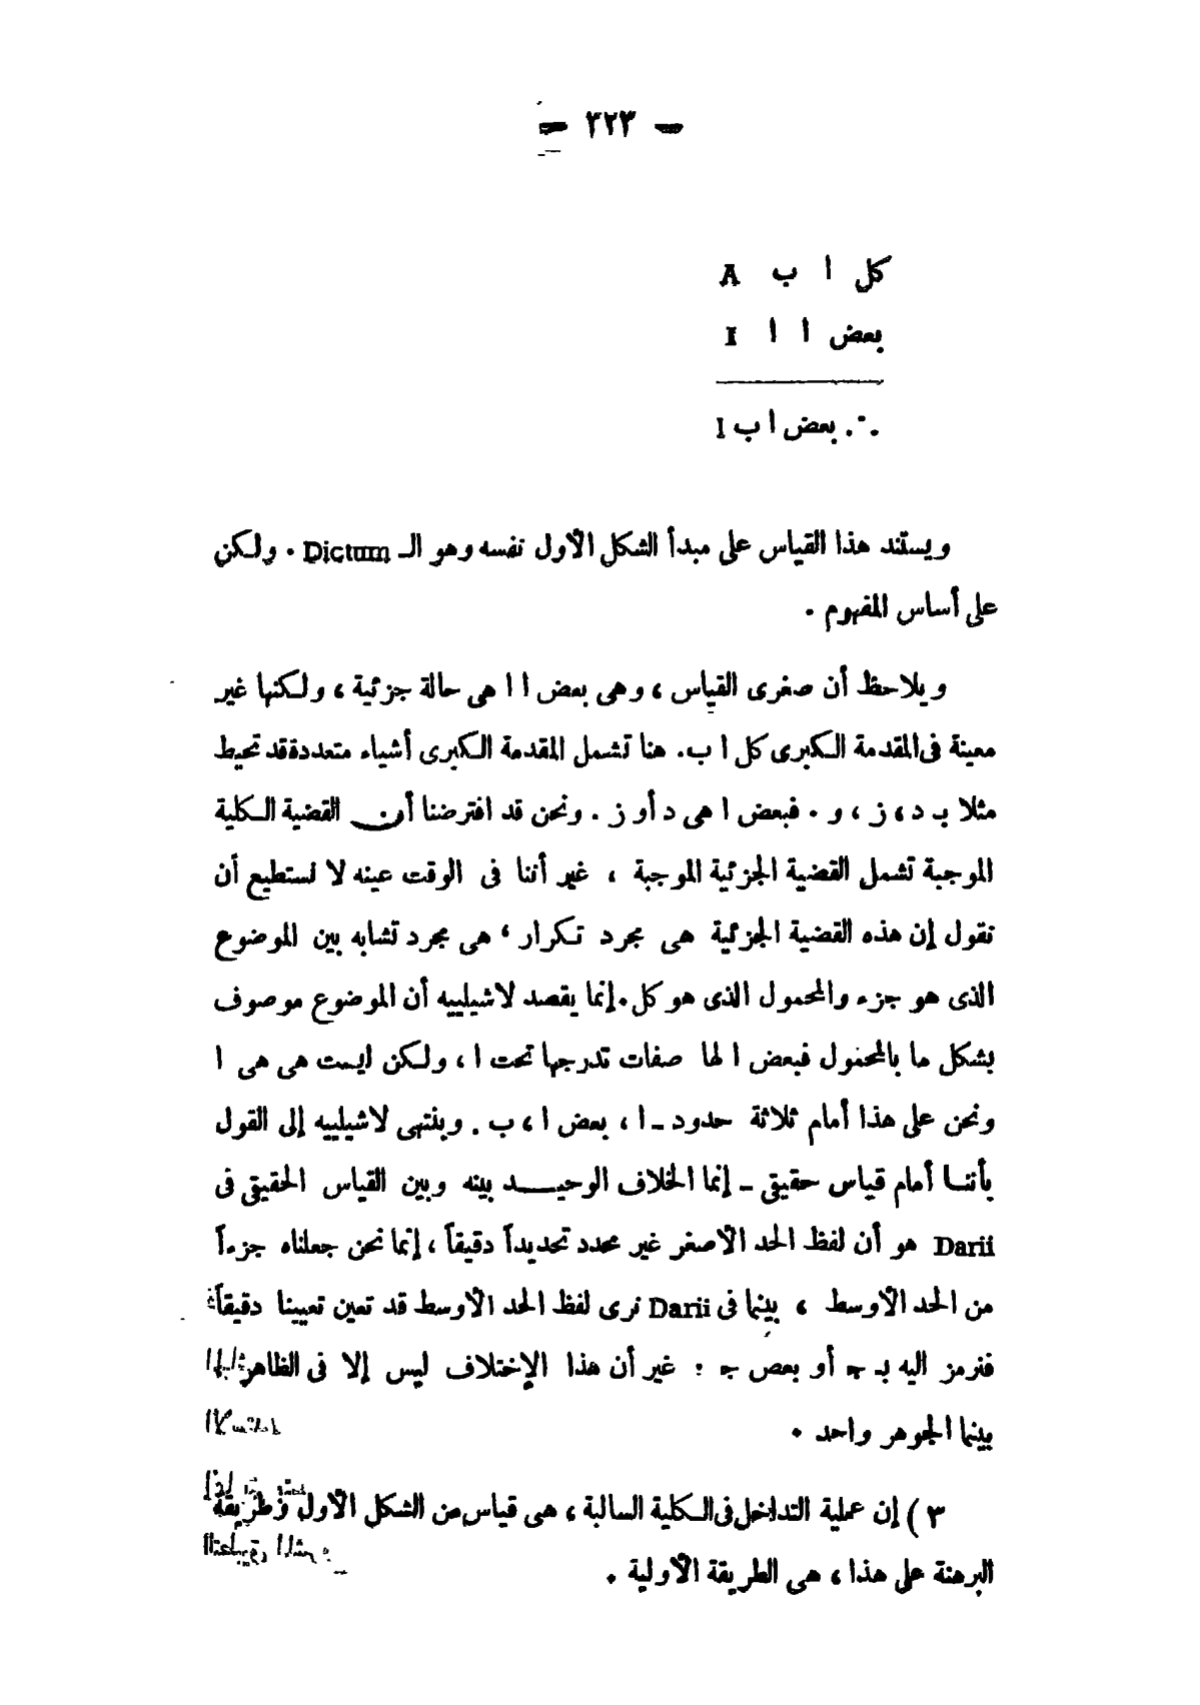 — ٣٢٣ —
كل ا ب A
بعض ا ا I
∴ بعض ا ب I
ويستند هذا القياس على مبدأ الشكل الأول نفسه وهو الـ Dictum . ولكن
على أساس المفهوم .
ويلاحظ أن صغرى القياس ، وهى بعض ا ا هى حالة جزئية ، ولكنها غير
معينة فى المقدمة الكبرى كل ا ب. هنا تشمل المقدمة الكبرى أشياء متعددة قد تحيط
مثلا بـ د ، ز ، و . فبعض ا هى د أو ز . ونحن قد افترضنا أن القضية الكلية
الموجبة تشمل القضية الجزئية الموجبة ، غير أننا فى الوقت عينه لا نستطيع أن
نقول إن هذه القضية الجزئية هى مجرد تكرار ، هى مجرد تشابه بين الموضوع
الذى هو جزء والمحمول الذى هو كل . إنما يقصد لاشيلييه أن الموضوع موصوف
بشكل ما بالمحمول فبعض ا لها صفات تدرجها تحت ا ، ولكن ليست هى هى ا
ونحن على هذا أمام ثلاثة حدود ـ ا ، بعض ا ، ب . وينتهى لاشيلييه إلى القول
بأننا أمام قياس حقيقى ـ إنما الخلاف الوحيد بينه وبين القياس الحقيقى فى
Darii هو أن لفظ الحد الأصغر غير محدد تحديداً دقيقاً ، إنما نحن جعلناه جزءاً
من الحد الأوسط ، بينما فى Darii نرى لفظ الحد الأوسط قد تعين تعيينا دقيقاً
فنرمز اليه بـ جـ أو بعض جـ : غير أن هذا الإختلاف ليس إلا فى الظاهر
بينما الجوهر واحد .
٣ ) إن عملية التداخل فى الكلية السالبة ، هى قياس من الشكل الأول وطريقة
البرهنة على هذا ، هى الطريقة الأولية .